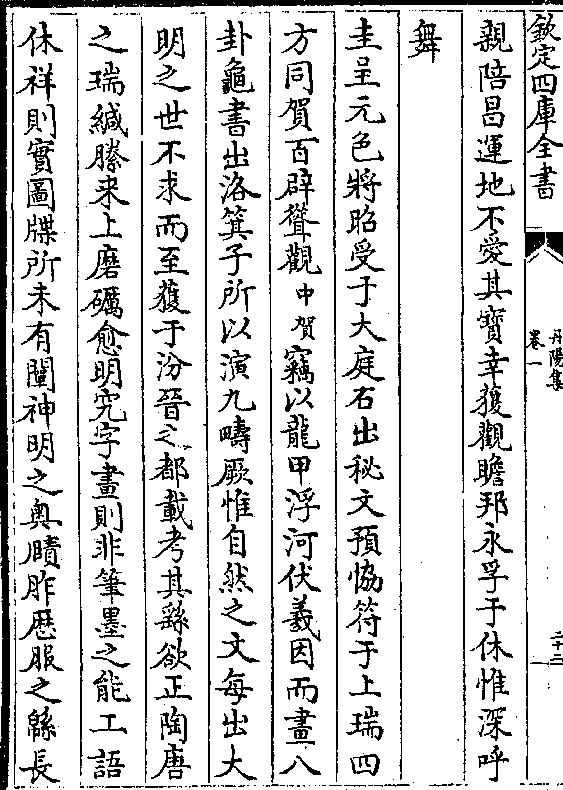 欽定四庫全書
丹陽集
卷一
二十三
親陪昌運地不愛其寶幸獲觀瞻邦永孚于休惟深呼
舞
圭呈元色將昭受于大庭石出秘文預恊符于上瑞四
方同賀百辟聳觀中賀竊以龍甲浮河伏羲因而畫八
卦龜書出洛箕子所以演九疇厥惟自然之文每出大
明之世不求而至獲于汾晉之都載考其繇欲正陶唐
之瑞緘縢来上磨礪愈明究字畫則非筆墨之能工語
休祥則實圖牒所未有闡神明之奥賾胙歴服之緜長